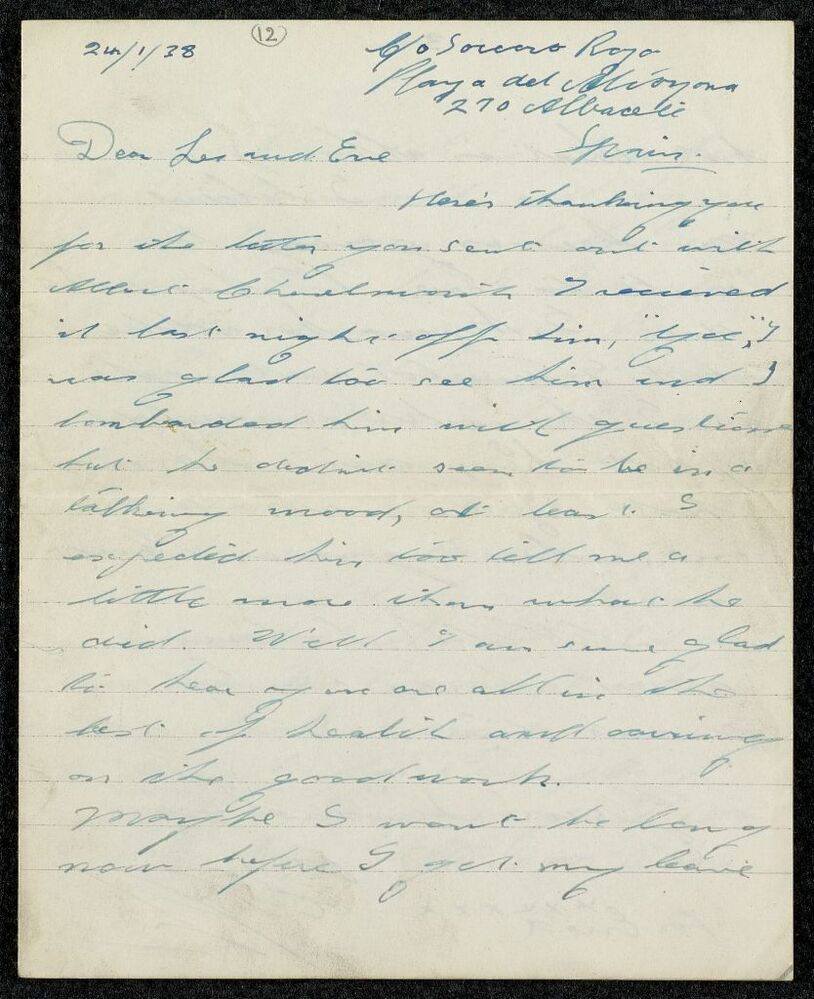 24/1/38 (12) C/o Socorro Rojo
Playa del
270 Albacete
Dear Les and Eve Spain.
Here's thanking you
for the letter you sent out with
Albert Charlesworth I recieved
it last night off him, "Yes", I
was glad too see him and I
bombarded him with questions
but he did'nt seem to be in a
talking mood, at least I
expected him too tell me a
little more than what he
did. Well I am sure glad
to hear you are all in the
best of health and carring
on the good work.
Maybe I wont be long
now before I get my leave